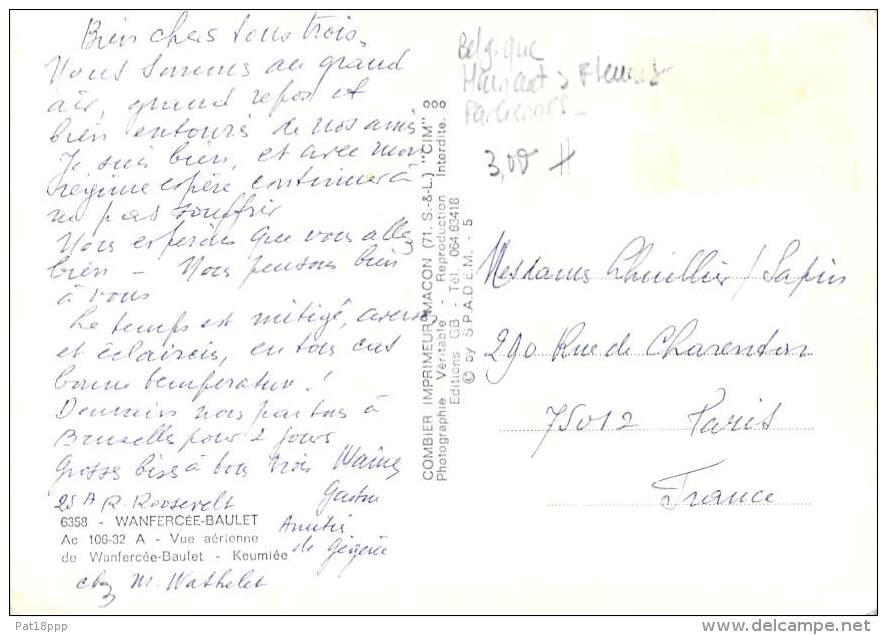 Bien chers tous trois,
Nous sommes au grand
air, grand repos et
bien entourés de nos amis
Je suis bien, et avec mon
régime espère continuer à
ne pas souffrir
Nous espérons que vous allez
bien - Nous pensons bien
à vous
Le temps est mitigé, averses
et éclaircies, en tous cas
bonne température !
Demain nous partons à
Bruxelles pour 2 jours
Grosses bises à tous trois
Gaston
25 A R. Roosevelt
Amitiés
de
6358 - WANFERCÉE-BAULET
Ac 106-32 A - Vue aérienne
de Wanfercée-Baulet - Keumiée
chez M. Wathelet
COMBIER IMPRIMEUR MACON (71. S.-&-L.) "CIM"
Photographie Véritable - Reproduction Interdite.
Editions GB - Tél. 064 63418
© by S.P.A.D.E.M. - 5
Belgique
Hainaut > Fleurus
3,00
Mesdames Lhuillier / Sapin
290 Rue de Charenton
75012 Paris
France
Pat18ppp
delcampe.net